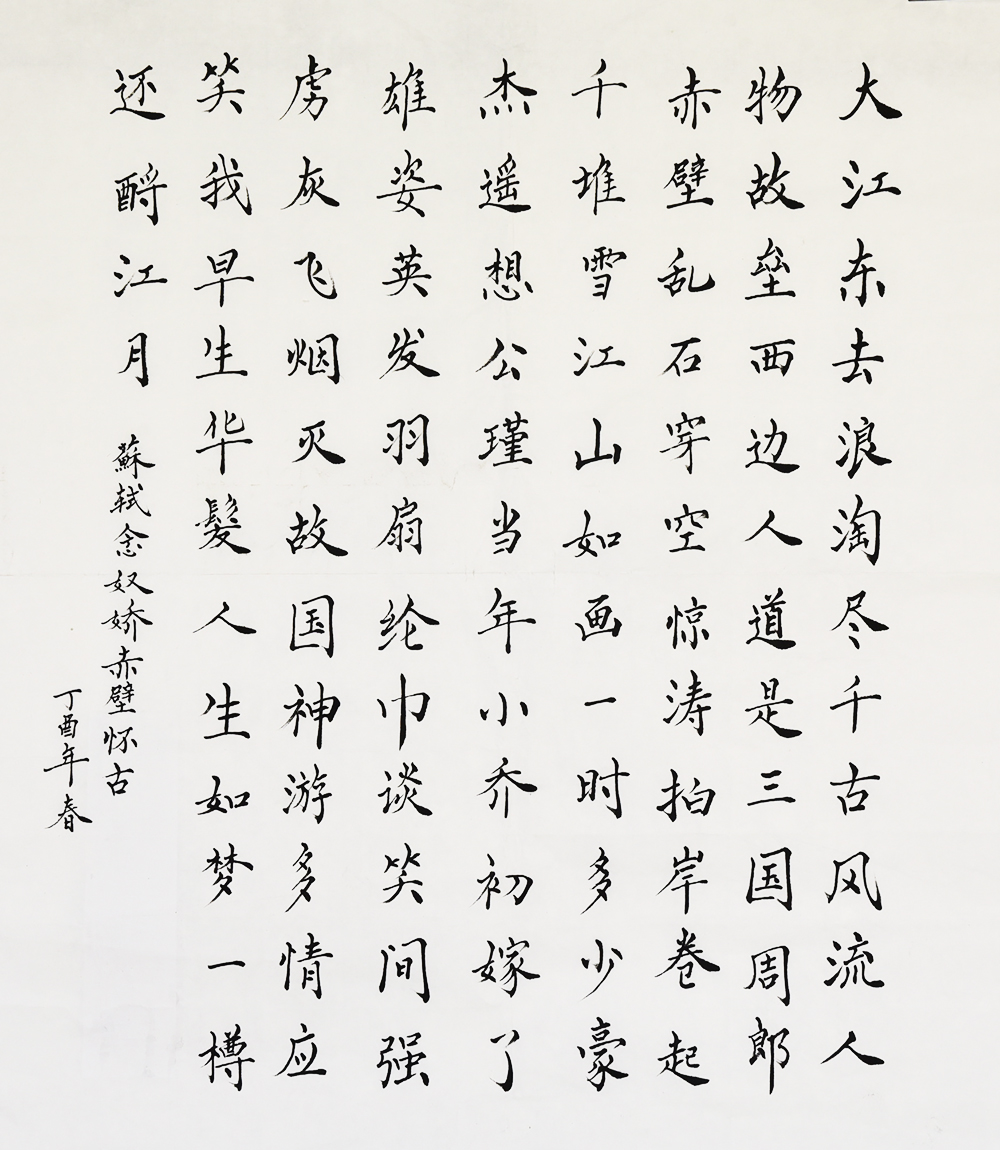 大江东去浪淘尽千古风流人
物故垒西边人道是三国周郎
赤壁乱石穿空惊涛拍岸卷起
千堆雪江山如画一时多少豪
杰遥想公瑾当年小乔初嫁了
雄姿英发羽扇纶巾谈笑间强
虏灰飞烟灭故国神游多情应
笑我早生华髪人生如梦一樽
还酹江月
蘇轼念奴娇赤壁怀古
丁酉年春